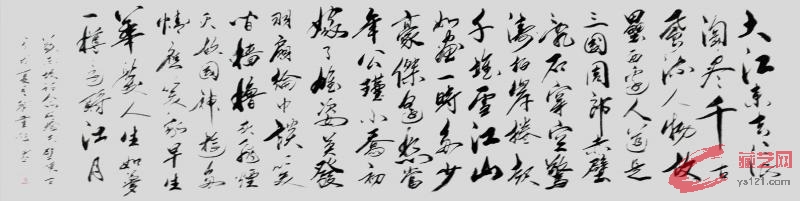 大江東去浪
淘盡千古
風流人物故
壘西邊人道是
三國周郎赤壁
亂石穿空驚
濤拍岸捲起
千堆雪江山
如畫一時多少
豪傑遙想當
年公瑾小喬初
嫁了雄姿英發
羽扇綸巾談笑
間檣櫓灰飛煙
滅故國神遊多
情應笑我早生
華髮人生如夢
一樽還酹江月
藏艺网
ys121.com